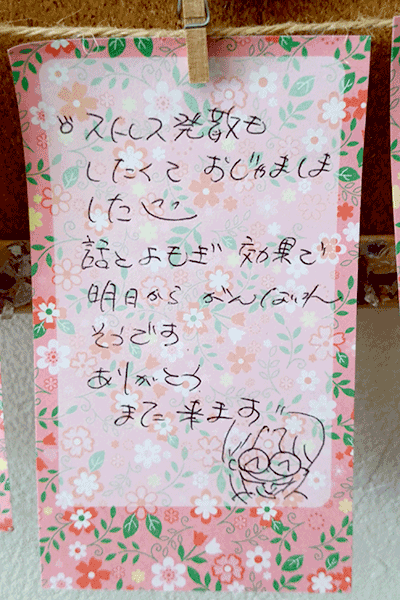 ストレス発散も
したくて おじゃましま
した
話とよもぎ 効果で
明日から がんばれ
そうです
ありがとう
また来ます